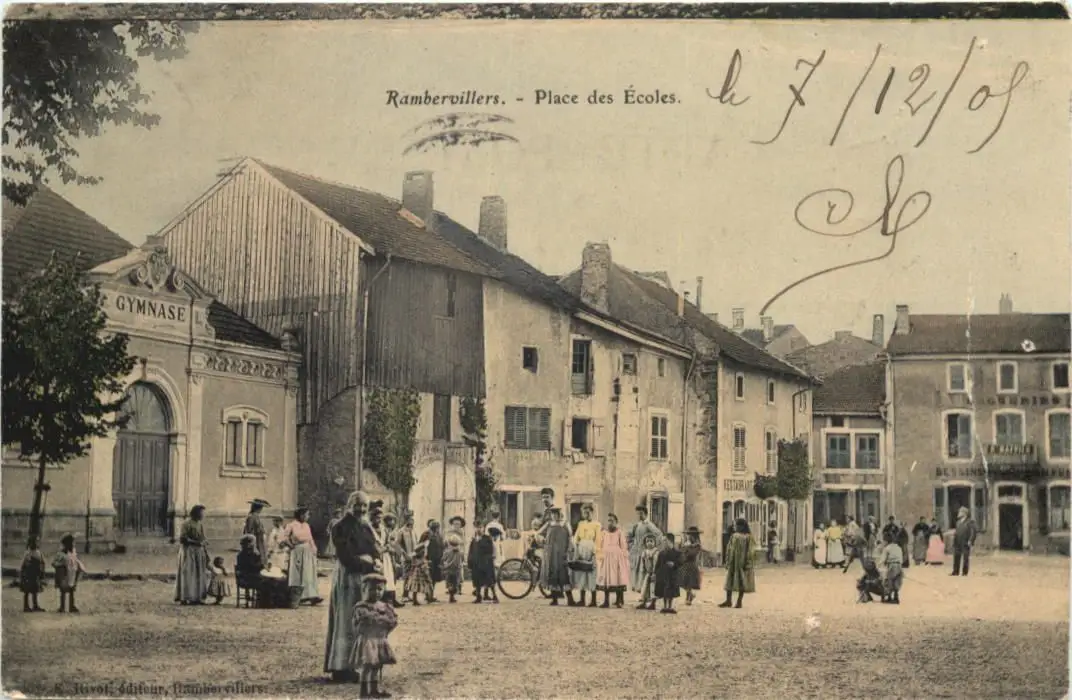 Rambervillers. - Place des Écoles.
le 7/12/05
GYMNASE
RESTAURANT
E. Rivot, éditeur, Rambervillers.